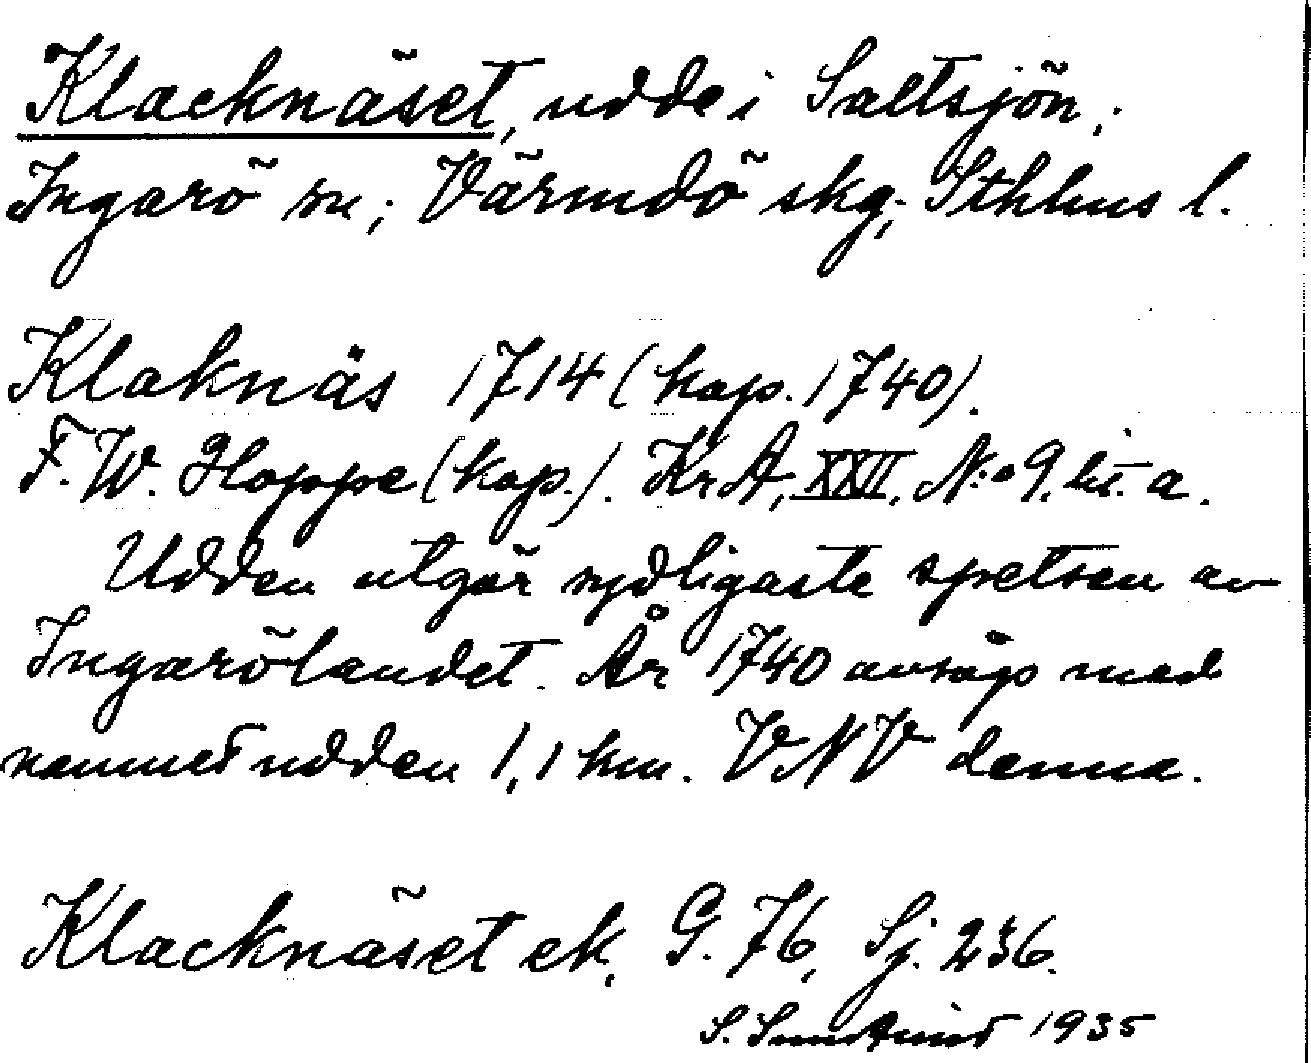 Klacknäset, udde i Saltsjön,
Ingarö sn; Värmdö skg; Sthlms l.
Klaknäs 1714 (kop. 1740).
F. W. Hoppe (kop.). KrA, XXII, N:o 9. lit. a.
Udden utgör sydligaste spetsen av
Ingarölandet. År 1740 avsågs med
namnet udden 1,1 km. VNV denna.
Klacknäset ek, G. 76, Sj. 236.
S. 1935